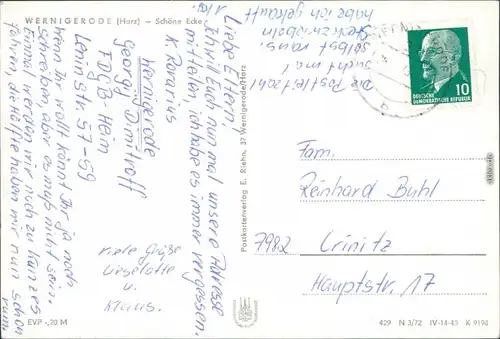 WERNIGERODE (Harz) – Schöne Ecke
Liebe Eltern,
ich will Euch nun mal unsere Adresse
mitteilen, ich habe es immer vergessen.
K.
Wernigerode
Georgij Dimitroff
FDGB-Heim
Leninstr. 57-59
Wenn Ihr wollt könnt Ihr ja noch
schreiben, aber es muß nicht sein.
Einmal werden wir noch zu kanzes
fahren, die Hälfte haben wir nun schon
rum.
Viele Grüße
Lieselotte
u.
Klaus.
EVP -,20 M
Postkartenverlag E. Riehn, 37 Wernigerode/Harz
Die Postleitzahl
sucht mal
selbst raus.
habe ich gekauft
DEUTSCHE
DEMOKRATISCHE REPUBLIK
10
Fam.
Reinhard Buhl
7982 Crinitz
Hauptstr. 17
429 N 3/72 IV-14-45 K 9190